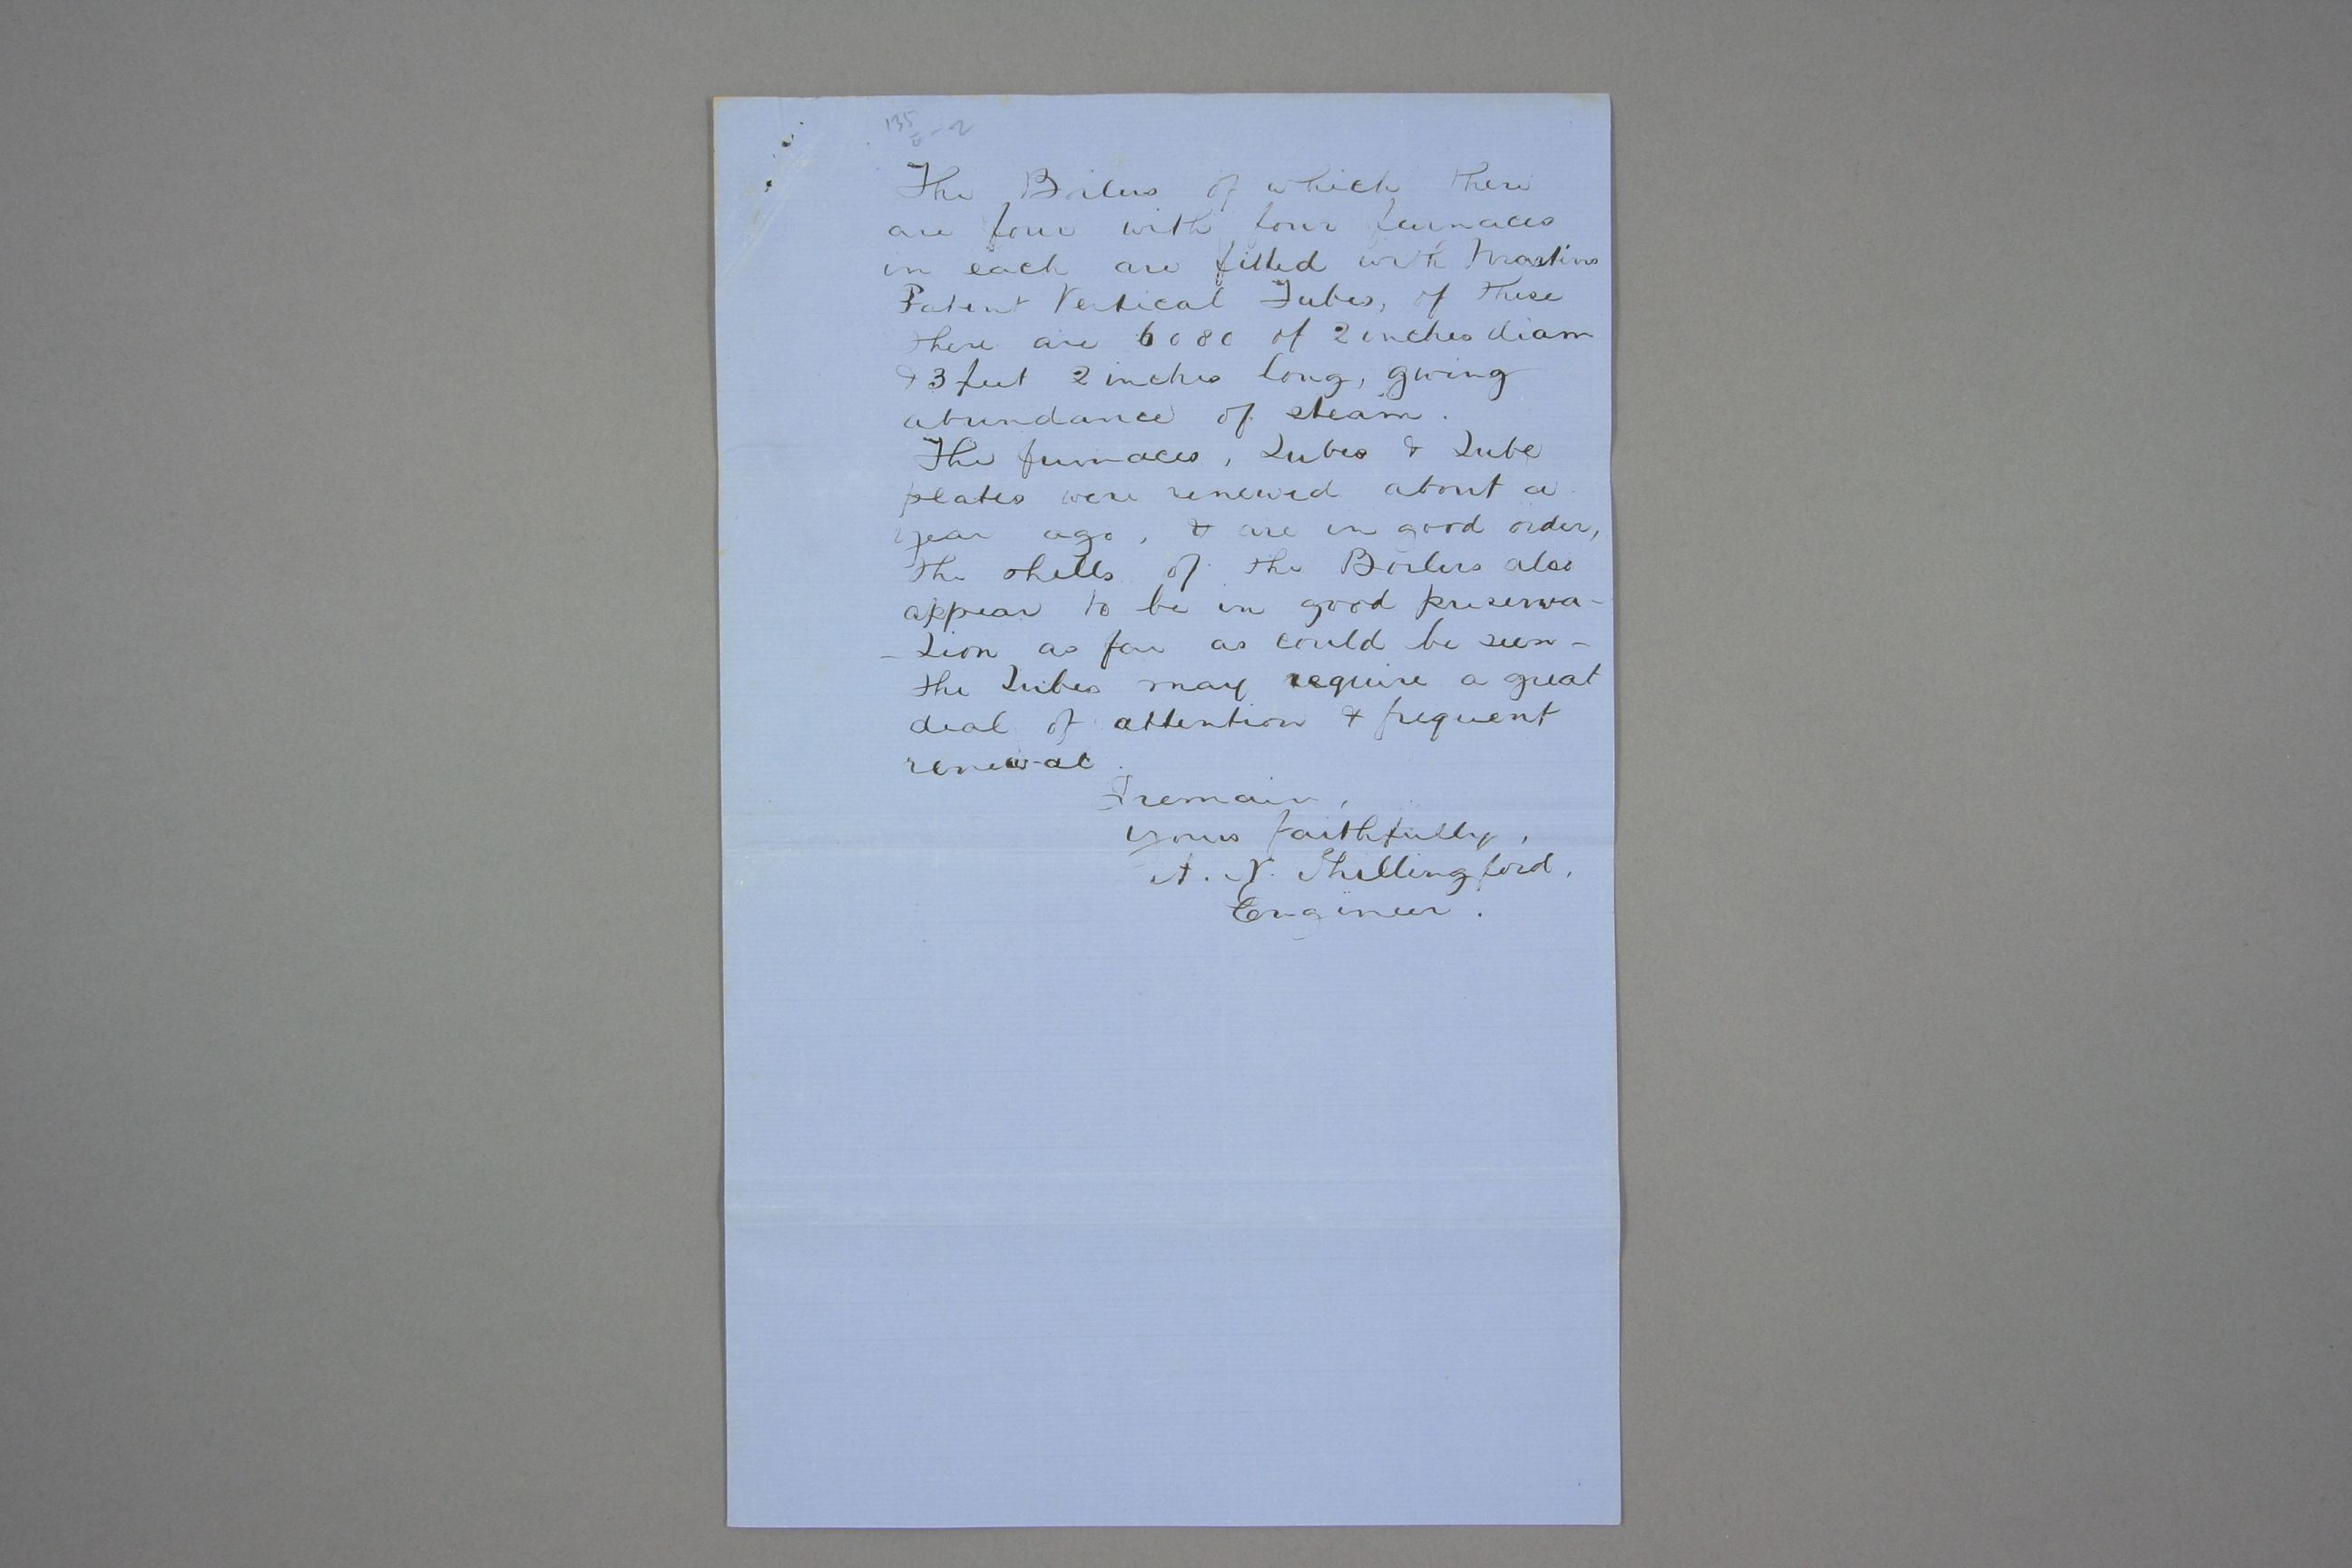 The Boilers of which there
are four with four furnaces
in each are fitted with Martins
Patent Vertical Tubes, of these
there are 6080 of 2 inches diam
& 3 feet 2 inches long, giving
abundance of steam.
The furnaces, Tubes & Tube
plates were renewed about a
year ago, & are in good order,
the shells of the Boilers also
appear to be in good preserva-
-tion as far as could be seen -
the Tubes may require a great
deal of attention & frequent
renewal.
I remain,
Yours faithfully,
A. N. Shillingford,
Engineer.